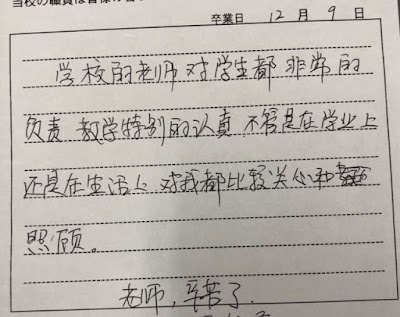 当校の職員は皆様の
卒業日 12 月 9 日
学校的老师对学生都 非常的
负责 教学特别的认真 不管是在学业上
还是在生活上 对我都比较关心和
照顾。
老师,辛苦了.